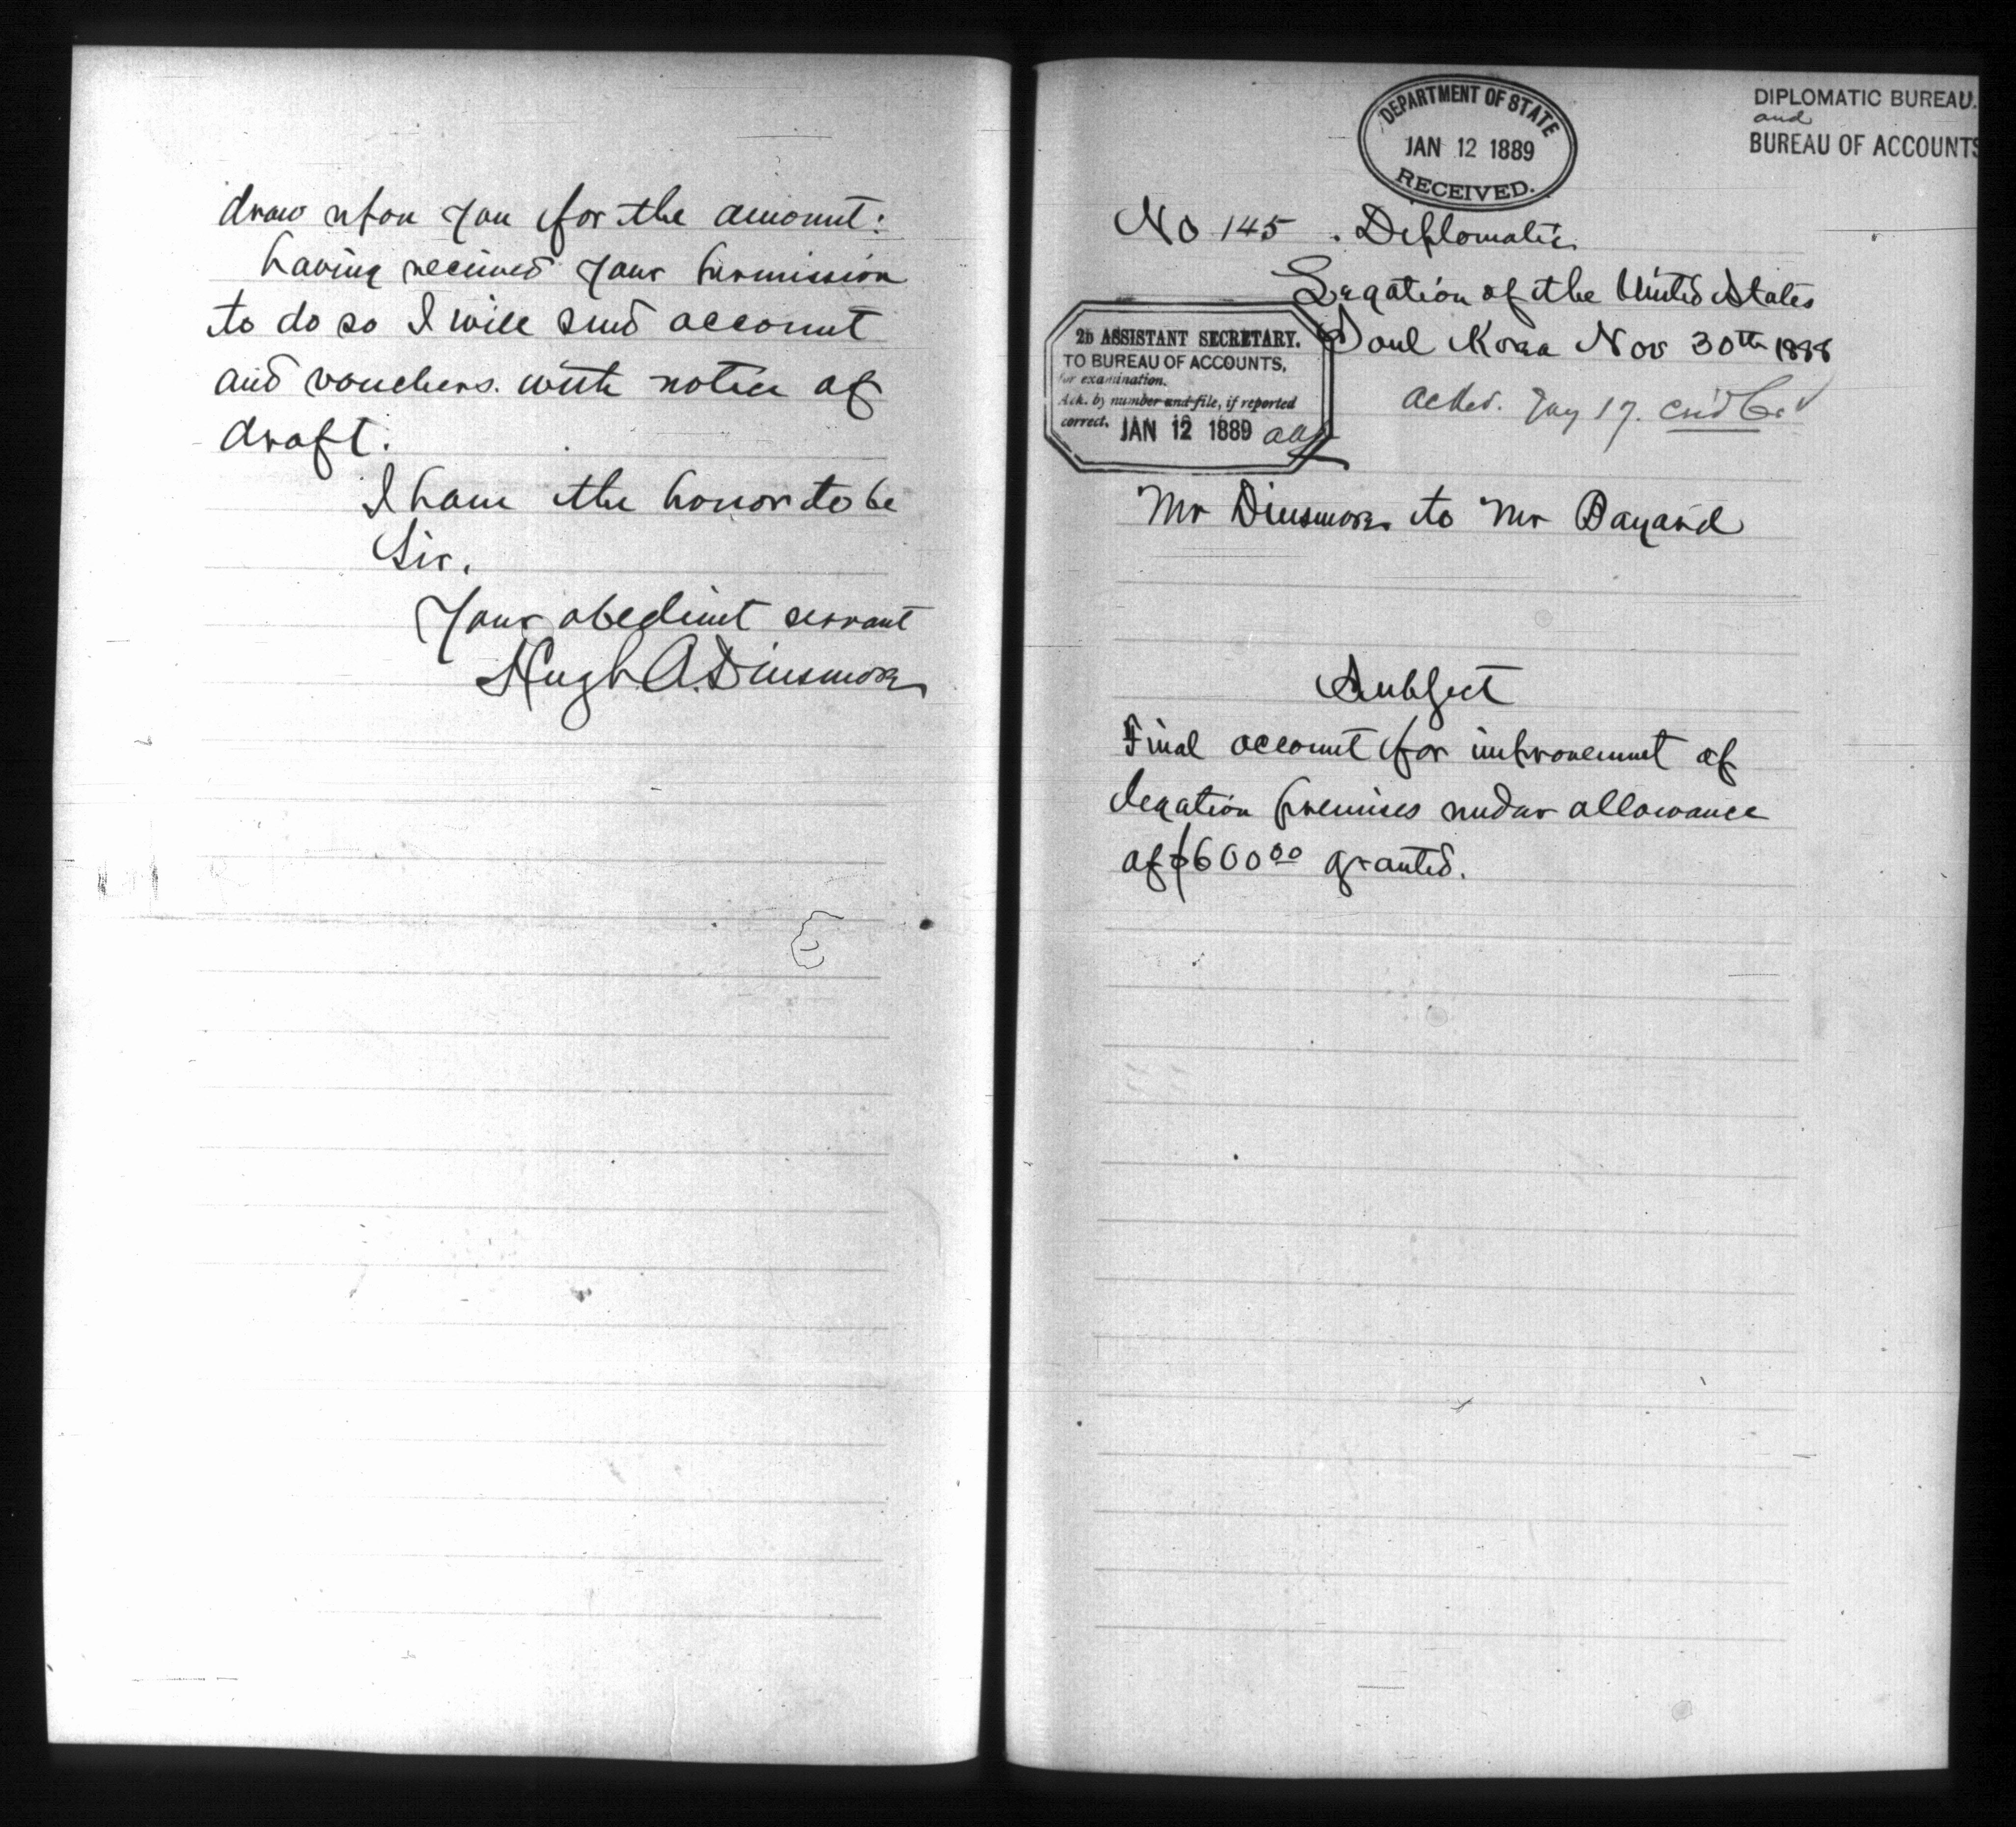 draw upon you for the amount:
having received your permission
to do so I will send account
and vouchers. with notice of
draft.
I have the honor to be
Sir.
Your obedient servant
Hugh A. Dinsmore
DEPARTMENT OF STATE
JAN 12 1889
RECEIVED.
DIPLOMATIC BUREAU.
and
BUREAU OF ACCOUNTS
No 145 . Diplomatic
Legation of the United States
Soul Korea Nov 30th 1888
2D ASSISTANT SECRETARY.
TO BUREAU OF ACCOUNTS,
for examination.
Ack. by number and file, if reported
correct. JAN 12 1889
acked. Jay 17.
Mr Dinsmore to Mr Bayard
Subject
Final account for improvement of
legation premises under allowance
of $600 00 granted.